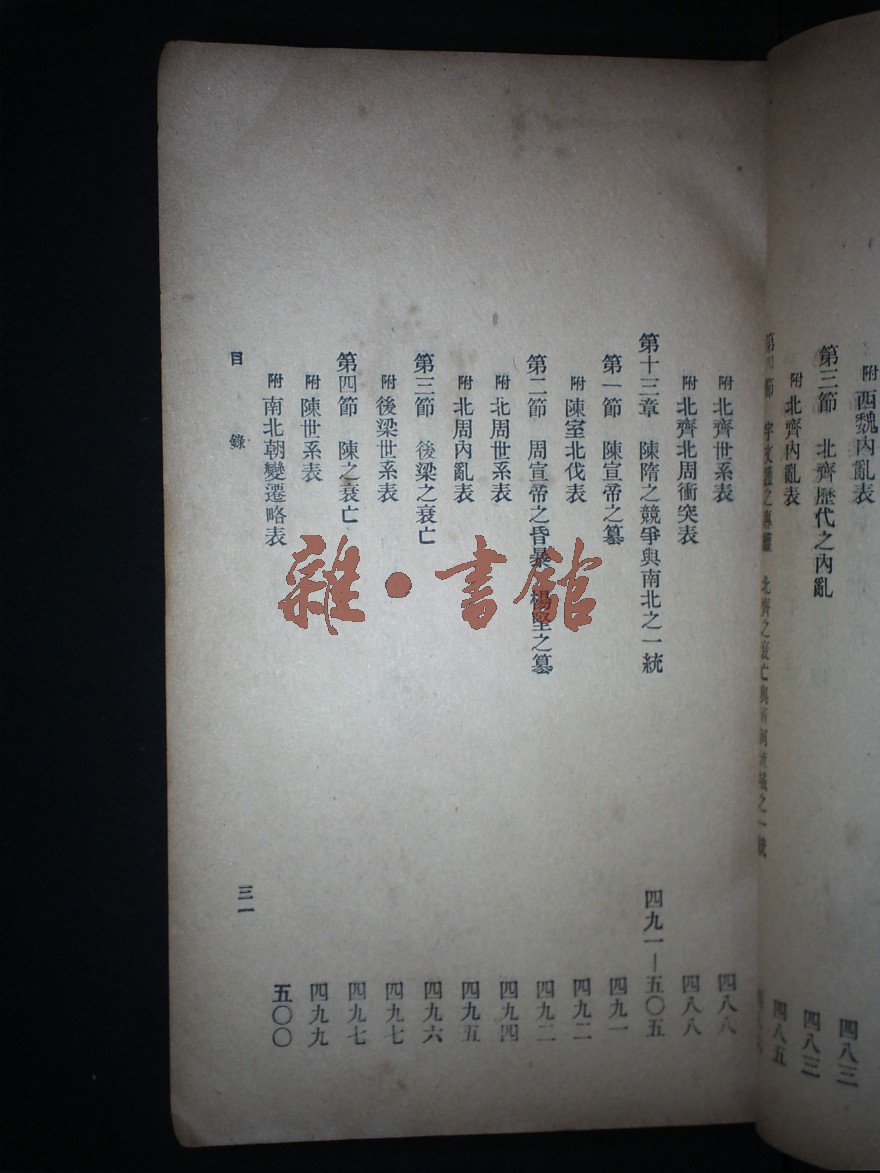 附 西魏內亂表 四八三
第三節 北齊歷代之內亂 四八三
附 北齊內亂表 四八五
節 宇文護之專權 北齊之衰亡與 之一統
附 北齊世系表 四八八
附 北齊北周衝突表 四八八
第十三章 陳隋之競爭與南北之一統 四九一—五〇五
第一節 陳宣帝之篡 四九一
附 陳室北伐表 四九二
第二節 周宣帝之昏暴 楊堅之篡 四九二
附 北周世系表 四九四
附 北周內亂表 四九五
第三節 後梁之衰亡 四九六
附 後梁世系表 四九七
第四節 陳之衰亡 四九七
附 陳世系表 四九九
附 南北朝變遷略表 五〇〇
目錄 三一
雜·書館